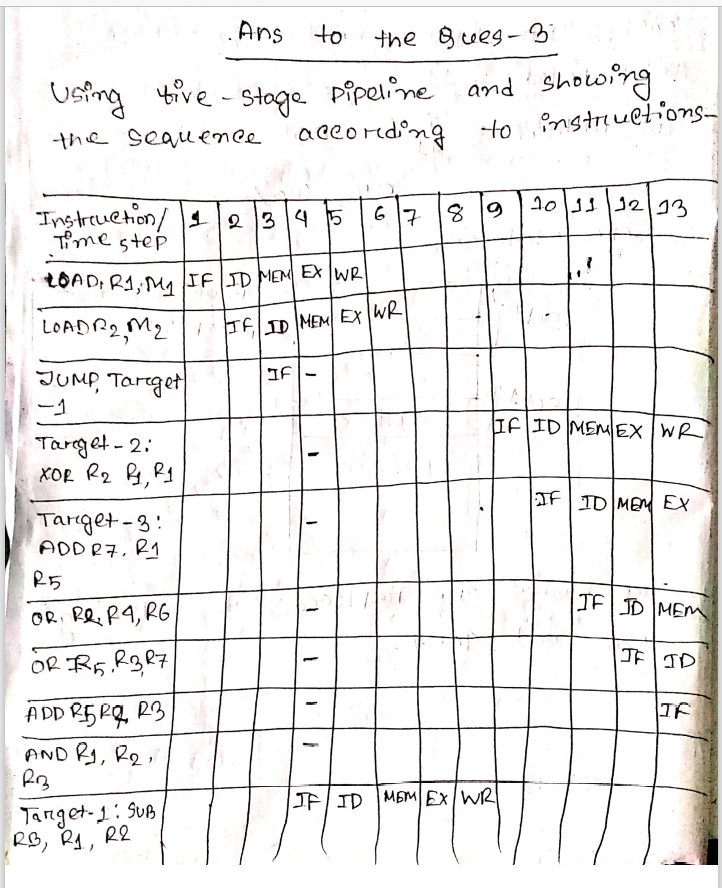 Ans to the Ques-3
Using five-stage Pipeline and showing
the sequence according to instructions-
Instruction/ Time step 1 2 3 4 5 6 7 8 9 10 11 12 13
LOAD, R1, M1 IF ID MEM EX WR
LOAD R2, M2 IF ID MEM EX WR
JUMP, Target -1 IF -
Target-2: XOR R2 R1, R1 - IF ID MEM EX WR
Target-3: ADD R7, R1 R5 - IF ID MEM EX
OR, R2, R4, R6 - IF ID MEM
OR R5, R3, R7 - IF ID
ADD R5 R2, R3 - IF
AND R1, R2, R3 -
Target-1: SUB R3, R1, R2 IF ID MEM EX WR